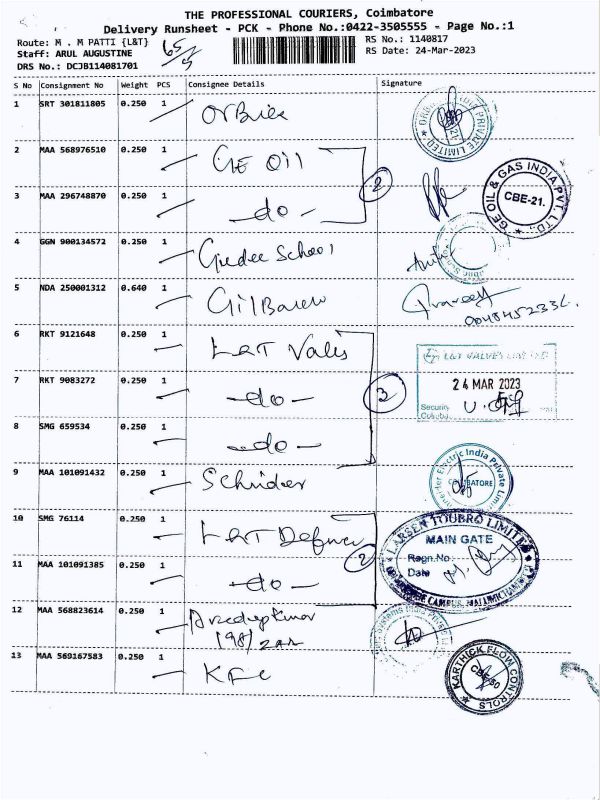 THE PROFESSIONAL COURIERS, Coimbatore
Delivery Runsheet - PCK - Phone No.:0422-3505555 - Page No.:1
Route: M . M PATTI {L&T}
RS No.: 1140817
Staff: ARUL AUGUSTINE
RS Date: 24-Mar-2023
DRS No.: DCJB114081701
65/5
S No Consignment No Weight PCS Consignee Details Signature
1 SRT 301811805 0.250 1
2 MAA 568976510 0.250 1 GE Oil
3 MAA 296748870 0.250 1 -do-
②
GE OIL & GAS INDIA PVT. LTD.,
CBE-21.
4 GGN 900134572 0.250 1 Gudee School
5 NDA 250001312 0.640 1
6 RKT 9121648 0.250 1 L&T Valves
7 RKT 9083272 0.250 1 -do-
8 SMG 659534 0.250 1 -do-
③
L&T VALVES LIMITED
24 MAR 2023
Security
9 MAA 101091432 0.250 1
Electric India Private
COIMBATORE
10 SMG 76114 0.250 1 L&T Defence
11 MAA 101091385 0.250 1 -do-
②
LARSEN TOUBRO LIMITED
MAIN GATE
Regn.No
Date
12 MAA 568823614 0.250 1
13 MAA 569167583 0.250 1 KFC
KARTHICK FLOW CONTROLS